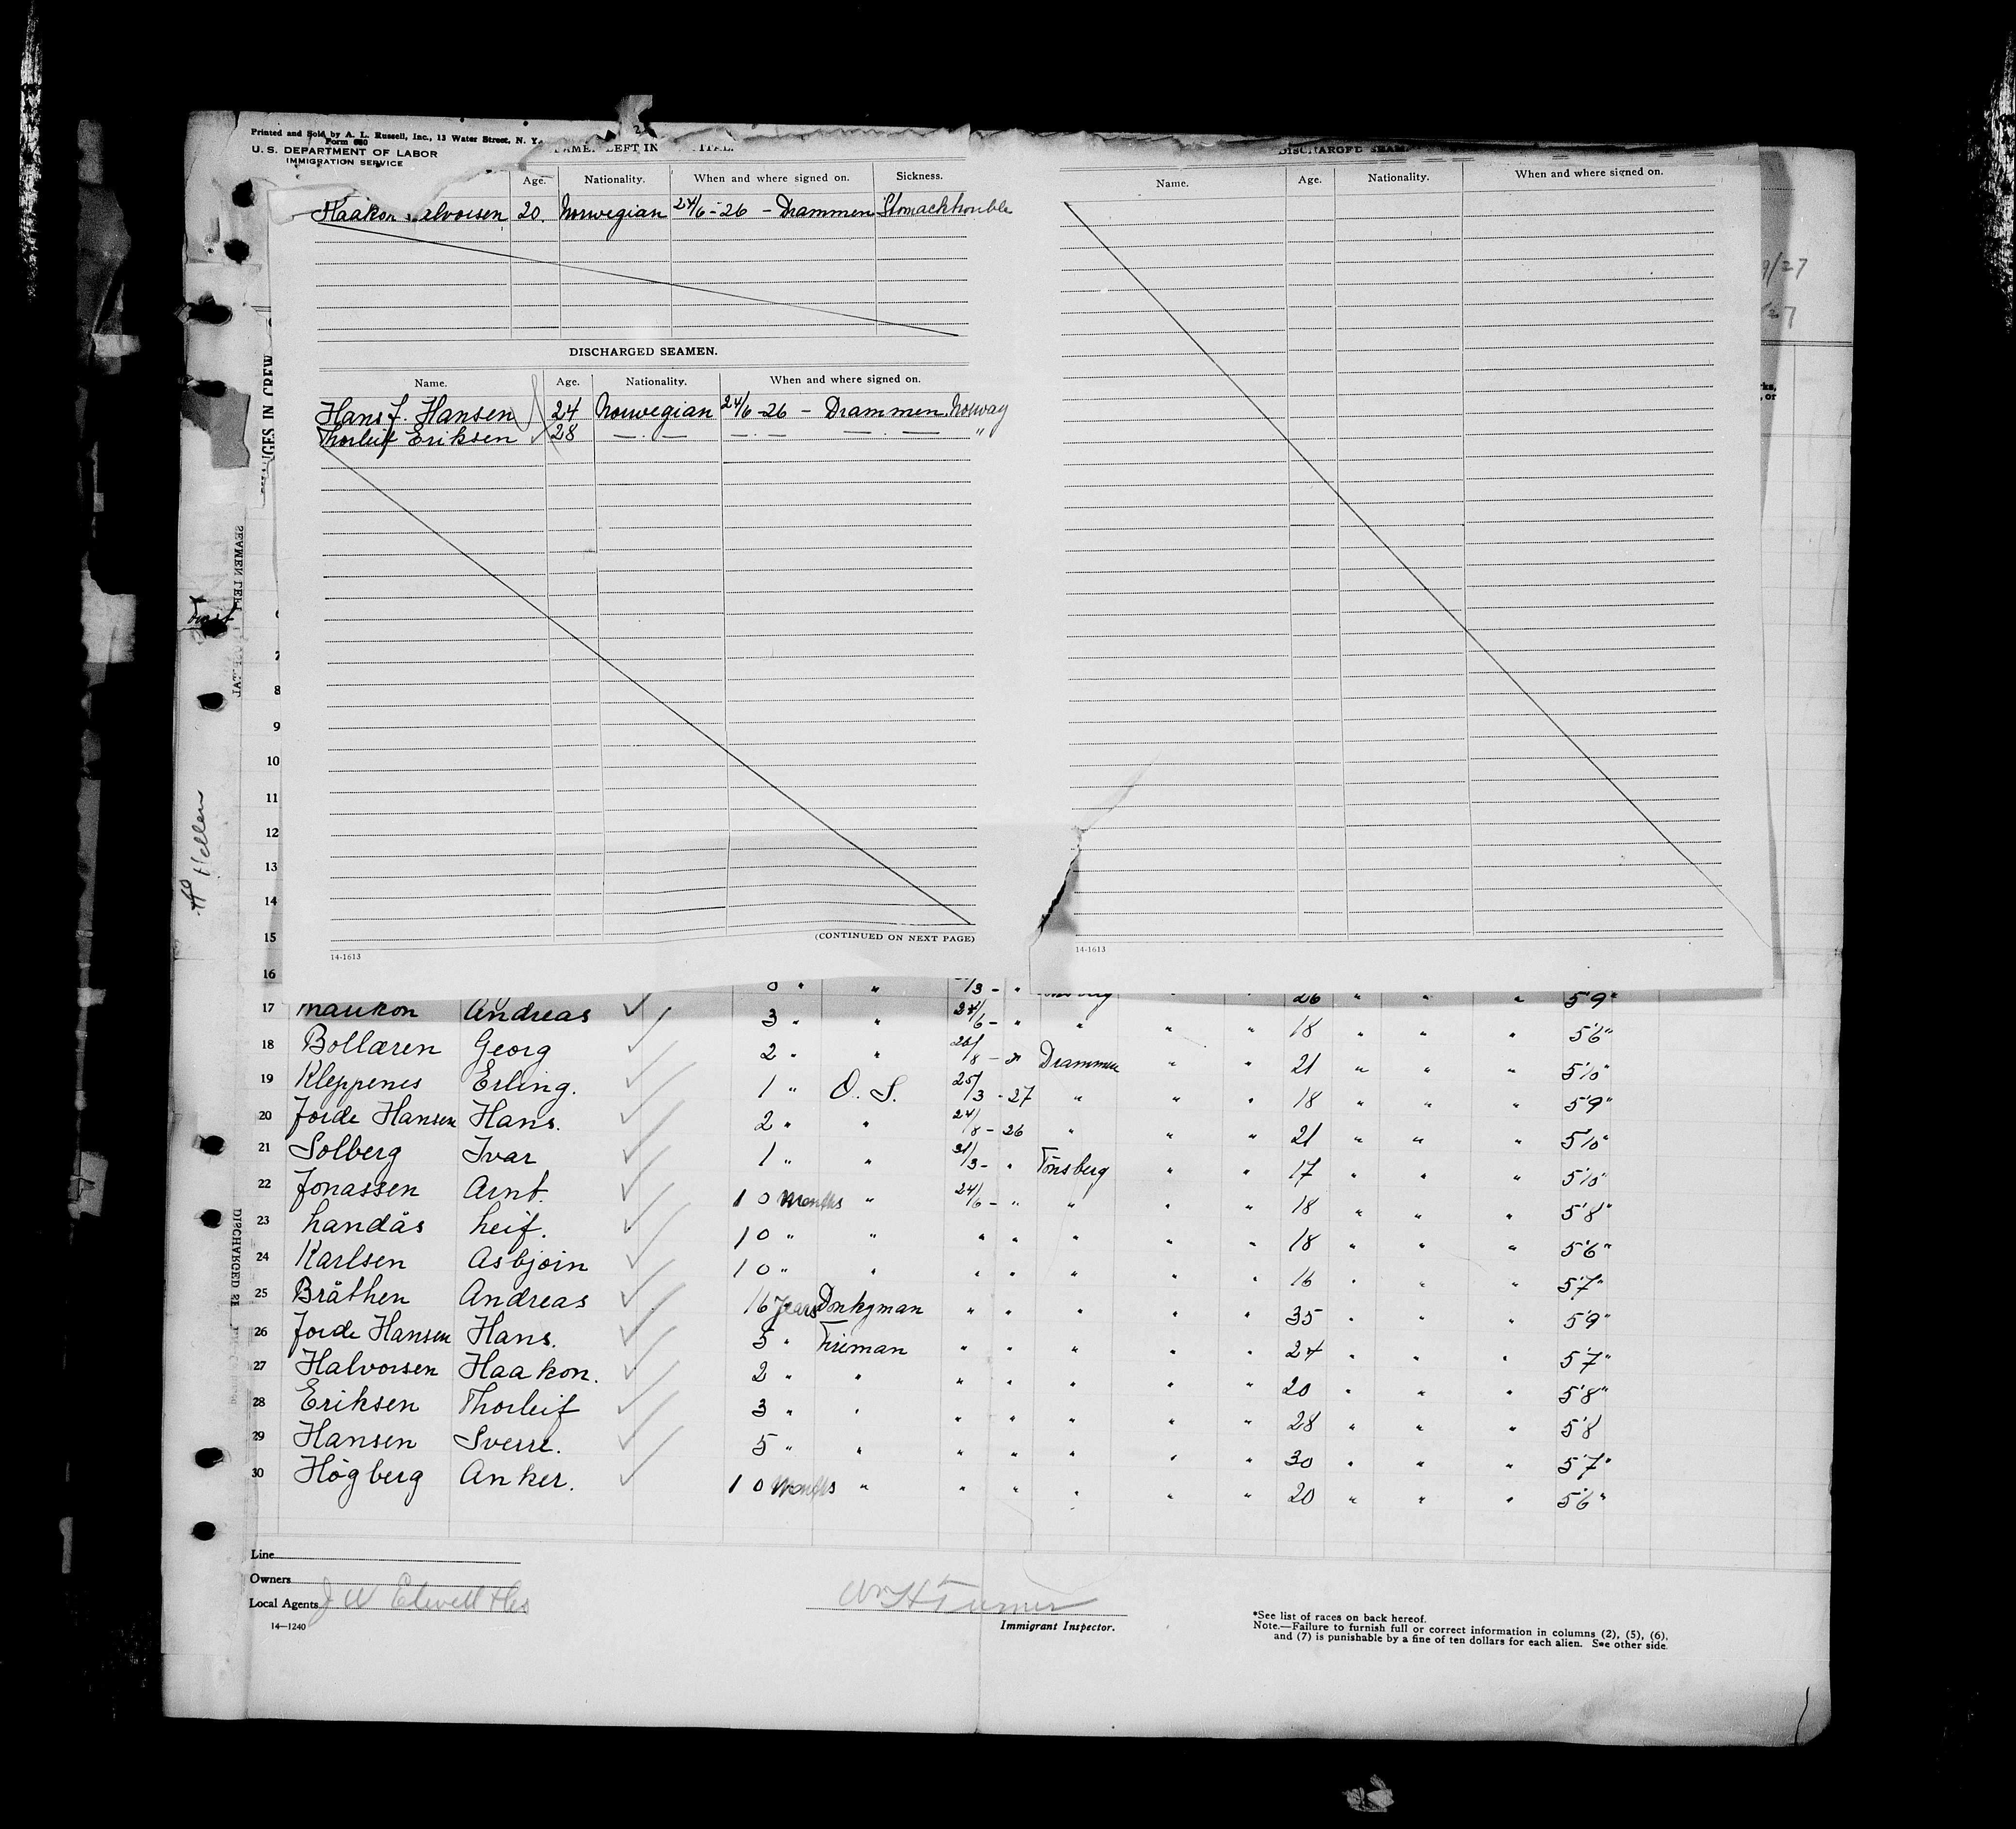 Printed and Sold by A. L. Russell, Inc., 13 Water Street, N. Y.
Form 680
U. S. DEPARTMENT OF LABOR
IMMIGRATION SERVICE
LEFT IN
Age. Nationality. When and where signed on. Sickness.
Haakon 20. Norwegian 24/6-26 - Drammen Stomachtrouble
DISCHARGED SEAMEN.
Name. Age. Nationality. When and where signed on.
Hans J. Hansen 24 Norwegian 24/6-26 - Drammen. Norway
Thorleif Eriksen 28 — . — — . — — . — "
(CONTINUED ON NEXT PAGE)
14-1613
DISCHARGED SEAM
Name. Age. Nationality. When and where signed on.
14-1613
9/27
27
IN CREW
SEAMEN LEFT
Heller
7
8
9
10
11
12
13
14
15
16 26 " " " 5'9"
17 Andreas 3 " " 24/6 - " " " " 18 " " " 5'6"
18 Bollæren Georg 2 " " Drammen " " 21 " " " 5'10"
19 Kleppenes Erling. 1 " O. S. 25/3 - 27 " " " 18 " " " 5'9"
20 Jorde Hansen Hans. 2 " " 24/8 - 26 " " " 21 " " " 5'10"
21 Solberg Ivar 1 " " 31/3 - " Tönsberg " " 17 " " " 5'10"
22 Jonassen Arnt. 10 Months " 24/6 - " " " " 18 " " " 5'8"
23 Landås Leif. 10 " " " " " " " 18 " " " 5'6"
24 Karlsen Asbjörn 10 " " " " " " " 16 " " " 5'7"
25 Bråthen Andreas 16 Years Donkyman " " " " " 35 " " " 5'9"
26 Jorde Hansen Hans. 5 " Fireman " " " " " 24 " " " 5'7"
27 Halvorsen Haakon. 2 " " " " " " " 20 " " " 5'8"
28 Eriksen Thorleif 3 " " " " " " " 28 " " " 5'8
29 Hansen Sverre. 5 " " " " " " " 30 " " " 5'7"
30 Högberg Anker. 10 Months " " " " " " 20 " " " 5'6"
Line
Owners
Local Agents J W Elwell & Co
14—1240
Wm H Turner
Immigrant Inspector.
*See list of races on back hereof.
Note.—Failure to furnish full or correct information in columns (2), (5), (6),
and (7) is punishable by a fine of ten dollars for each alien. See other side.